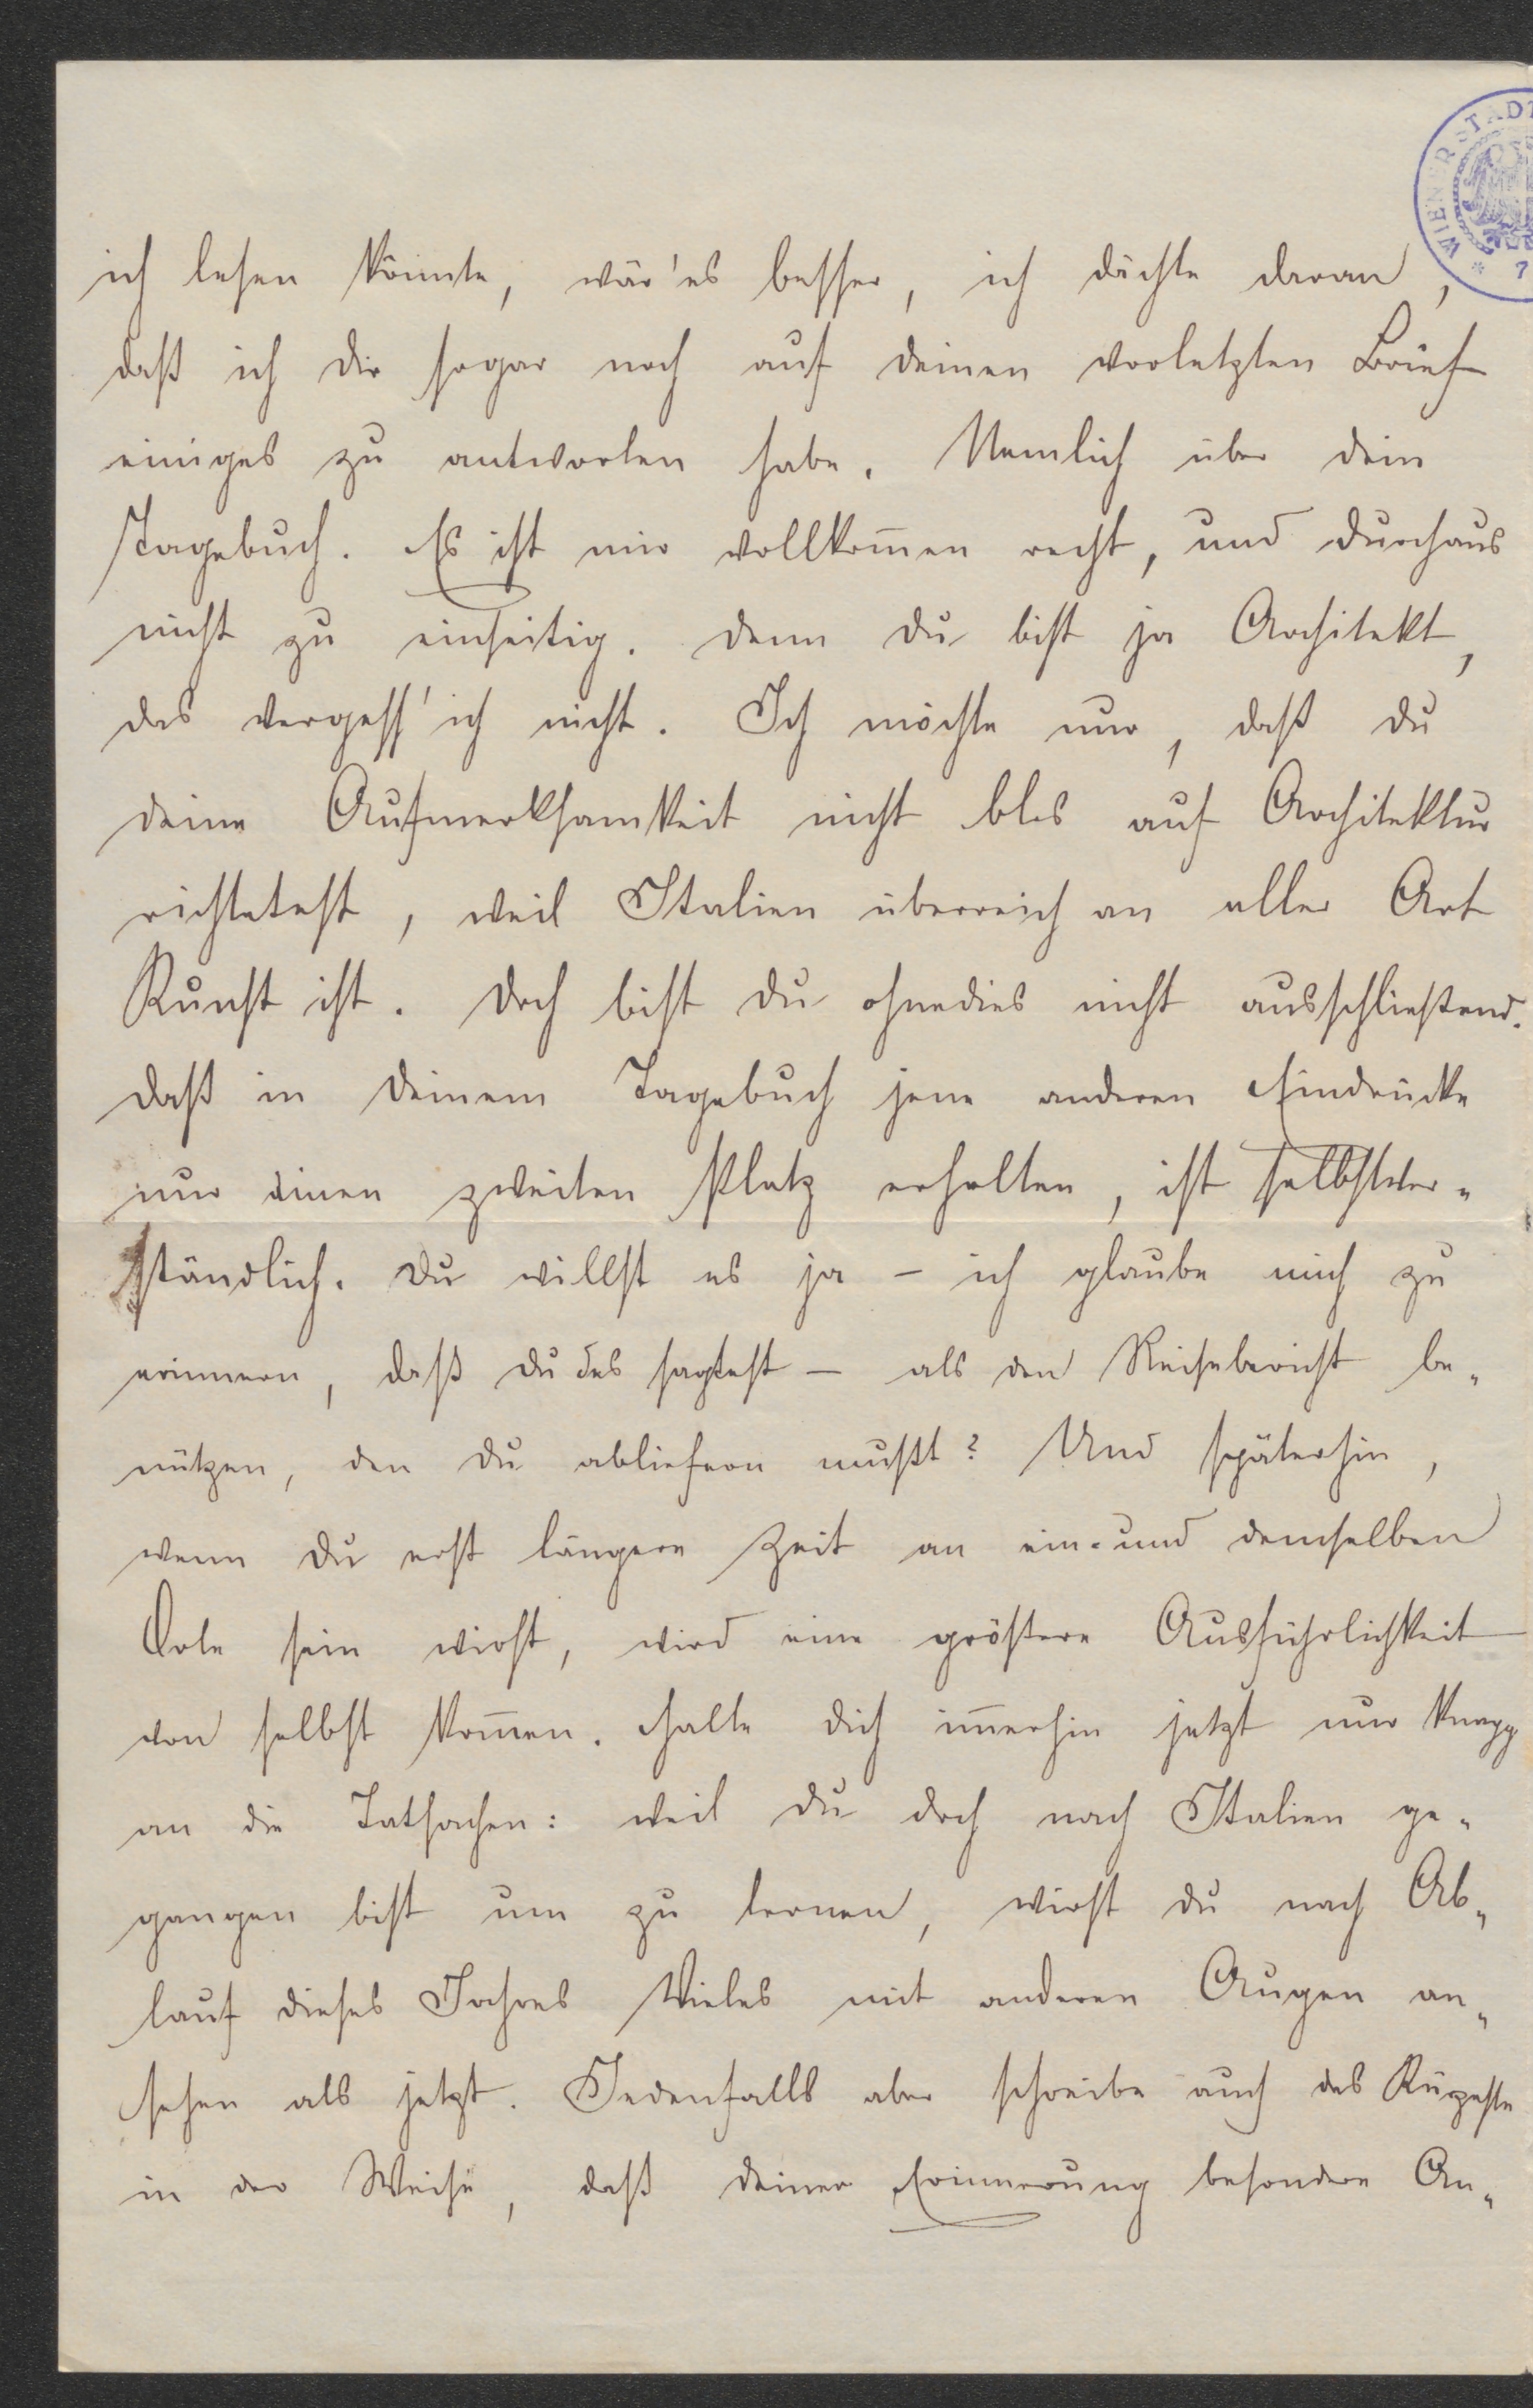 WIENER STADT
ich lesen könnte, wär'es besser, ich dächte daran,
daß ich dir sogar noch auf deinen vorletzten Brief
einiges zu antworten habe. Nemlich über dein
Tagebuch. Es ist mir vollkom̄en recht, und durchaus
nicht zu einseitig. denn du bist ja Architekt,
das vergess' ich nicht. Ich möchte nur, daß du
deine Aufmerksamkeit nicht blos auf Architektur
richtetest, weil Italien überreich an aller Art
Kunst ist. Doch bist du ohnedies nicht ausschließend.
Daß in deinem Tagebuch jene anderen Eindrücke
nur einen zweiten Platz erhalten, ist selbstver-
ständlich. Du willst es ja – ich glaube mich zu
erinnern, daß du des sagtest – als den Reisebericht be-
nützen, den du abliefern mußt? Und späterhin,
wenn du erst längere Zeit an ein- und demselben
Orte sein wirst, wird eine größere Ausführlichkeit
von selbst kom̄en. Halte dich im̄erhin jetzt nur knapp
an die Tatsachen: weil du doch nach Italien ge-
gangen bist um zu lernen, wirst du nach Ab-
lauf dieses Jahres Vieles mit anderen Augen an-
sehen als jetzt. Jedenfalls aber schreibe auch das Kürzeste
in der Weise, daß deiner Erinnerung besondere An-